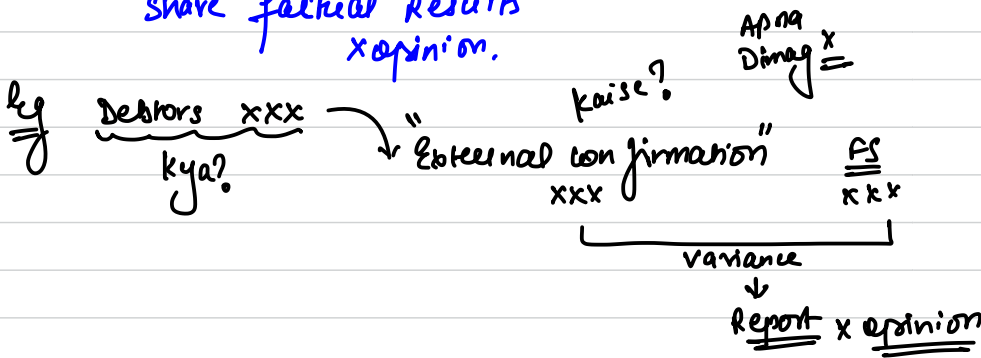 Share factual Results
x opinion.
Apna
Dimag x
Eg Debtors xxx
Kya?
Kaise?
"External confirmation"
xxx
FS
xxx
Variance
↓
Report x opinion